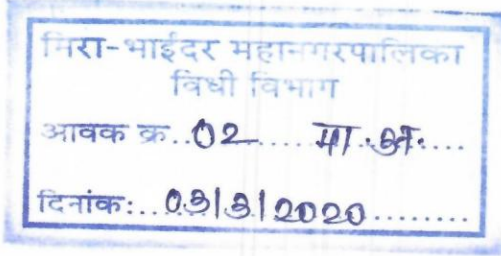 मिरा-भाईंदर महानगरपालिका
विधी विभाग
आवक क्र..02.....मा.अ.....
दिनांक:..03/3/2020.........